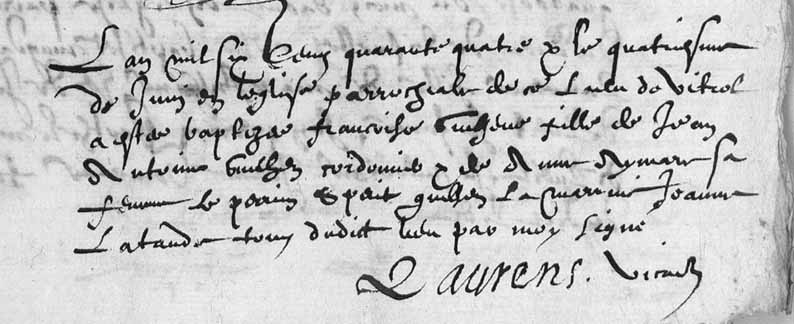 Lan mil six cens quarante quatre & le quatriesme
de Juin en leglise parrochiale de ce lieu de Vitrol
a estee baptizee francoise Guihene fille de Jean
Antoine Guihen cordonnie & de Anne Aymare sa
femme le perin Esperit guihen La marrine Jeanne
Latande tous dudict lieu par moy signe
Laurens. Vicaire